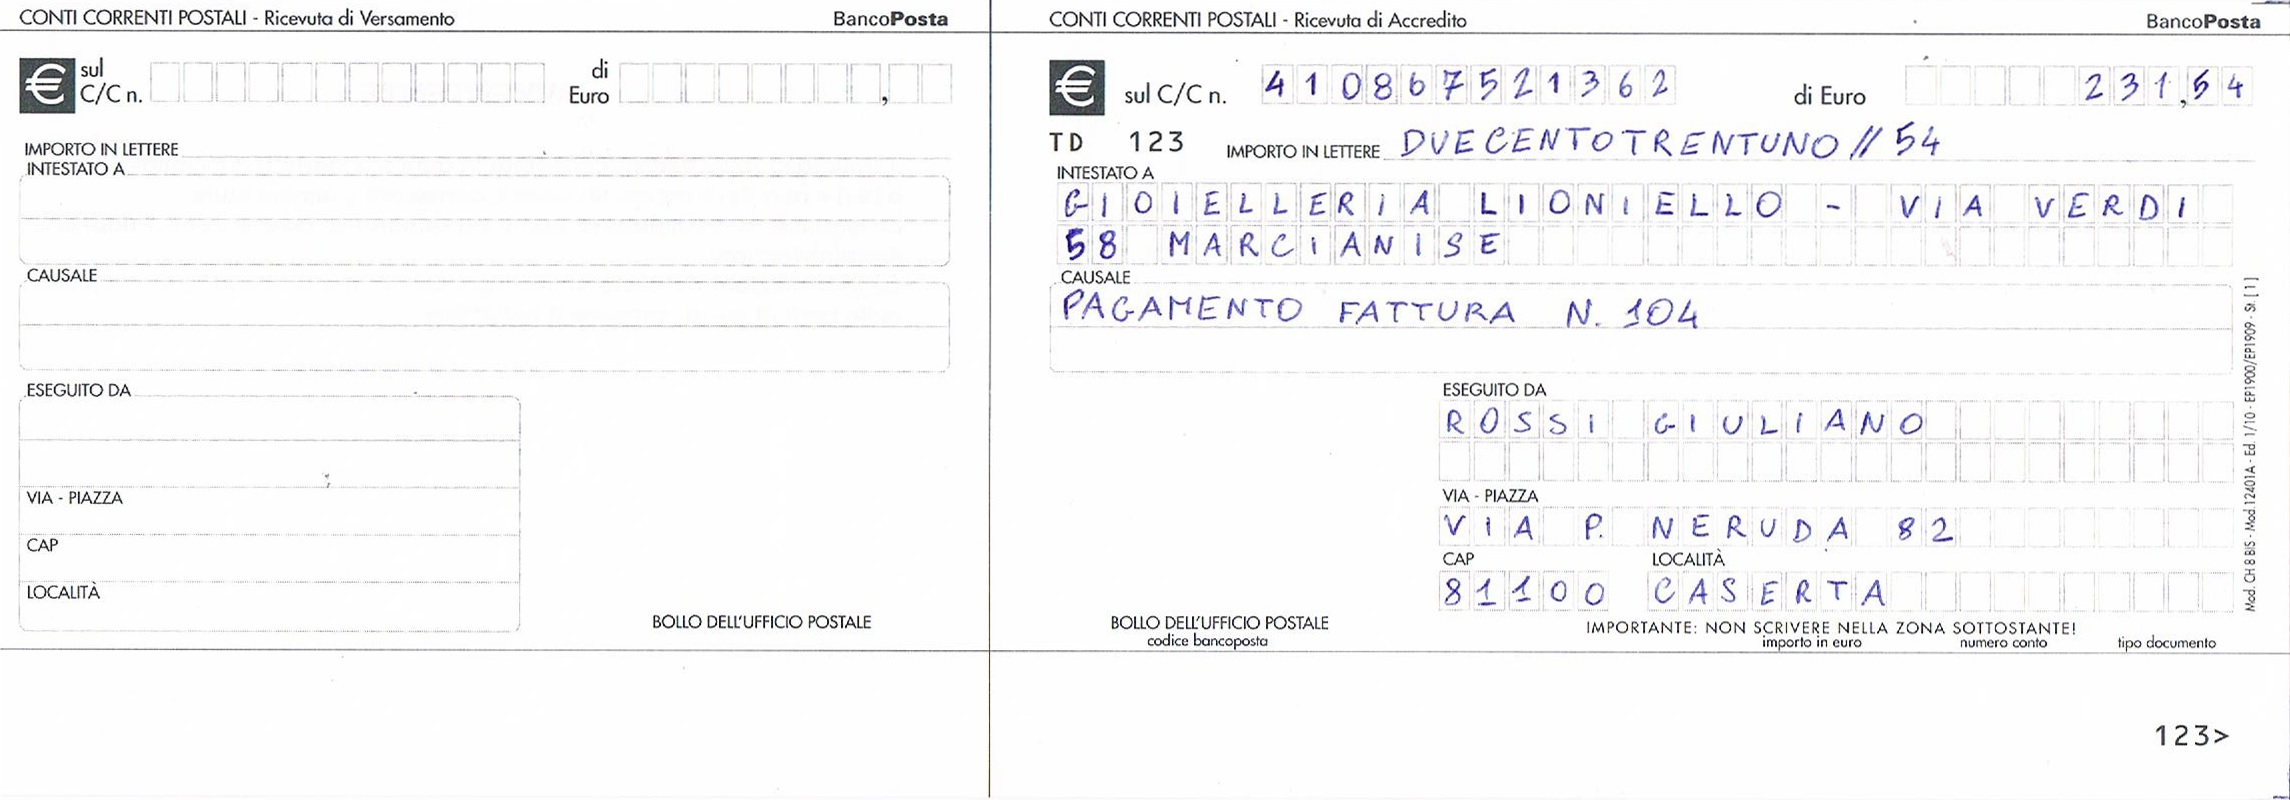 CONTI CORRENTI POSTALI - Ricevuta di Versamento BancoPosta
€ sul C/C n. di Euro ,
IMPORTO IN LETTERE
INTESTATO A
CAUSALE
ESEGUITO DA
VIA - PIAZZA
CAP
LOCALITÀ
BOLLO DELL'UFFICIO POSTALE
CONTI CORRENTI POSTALI - Ricevuta di Accredito BancoPosta
€ sul C/C n. 410867521362 di Euro 231,54
TD 123 IMPORTO IN LETTERE DUECENTOTRENTUNO // 54
INTESTATO A
GIOIELLERIA LIONIELLO - VIA VERDI
58 MARCIANISE
CAUSALE
PAGAMENTO FATTURA N. 104
ESEGUITO DA
ROSSI GIULIANO
VIA - PIAZZA
VIA P. NERUDA 82
CAP LOCALITÀ
81100 CASERTA
BOLLO DELL'UFFICIO POSTALE
codice bancoposta
IMPORTANTE: NON SCRIVERE NELLA ZONA SOTTOSTANTE!
importo in euro numero conto tipo documento
Mod. CH 8 BIS - Mod. 12401A - Ed. 1/10 - EP1900/EP1909 - St. [1]
123>